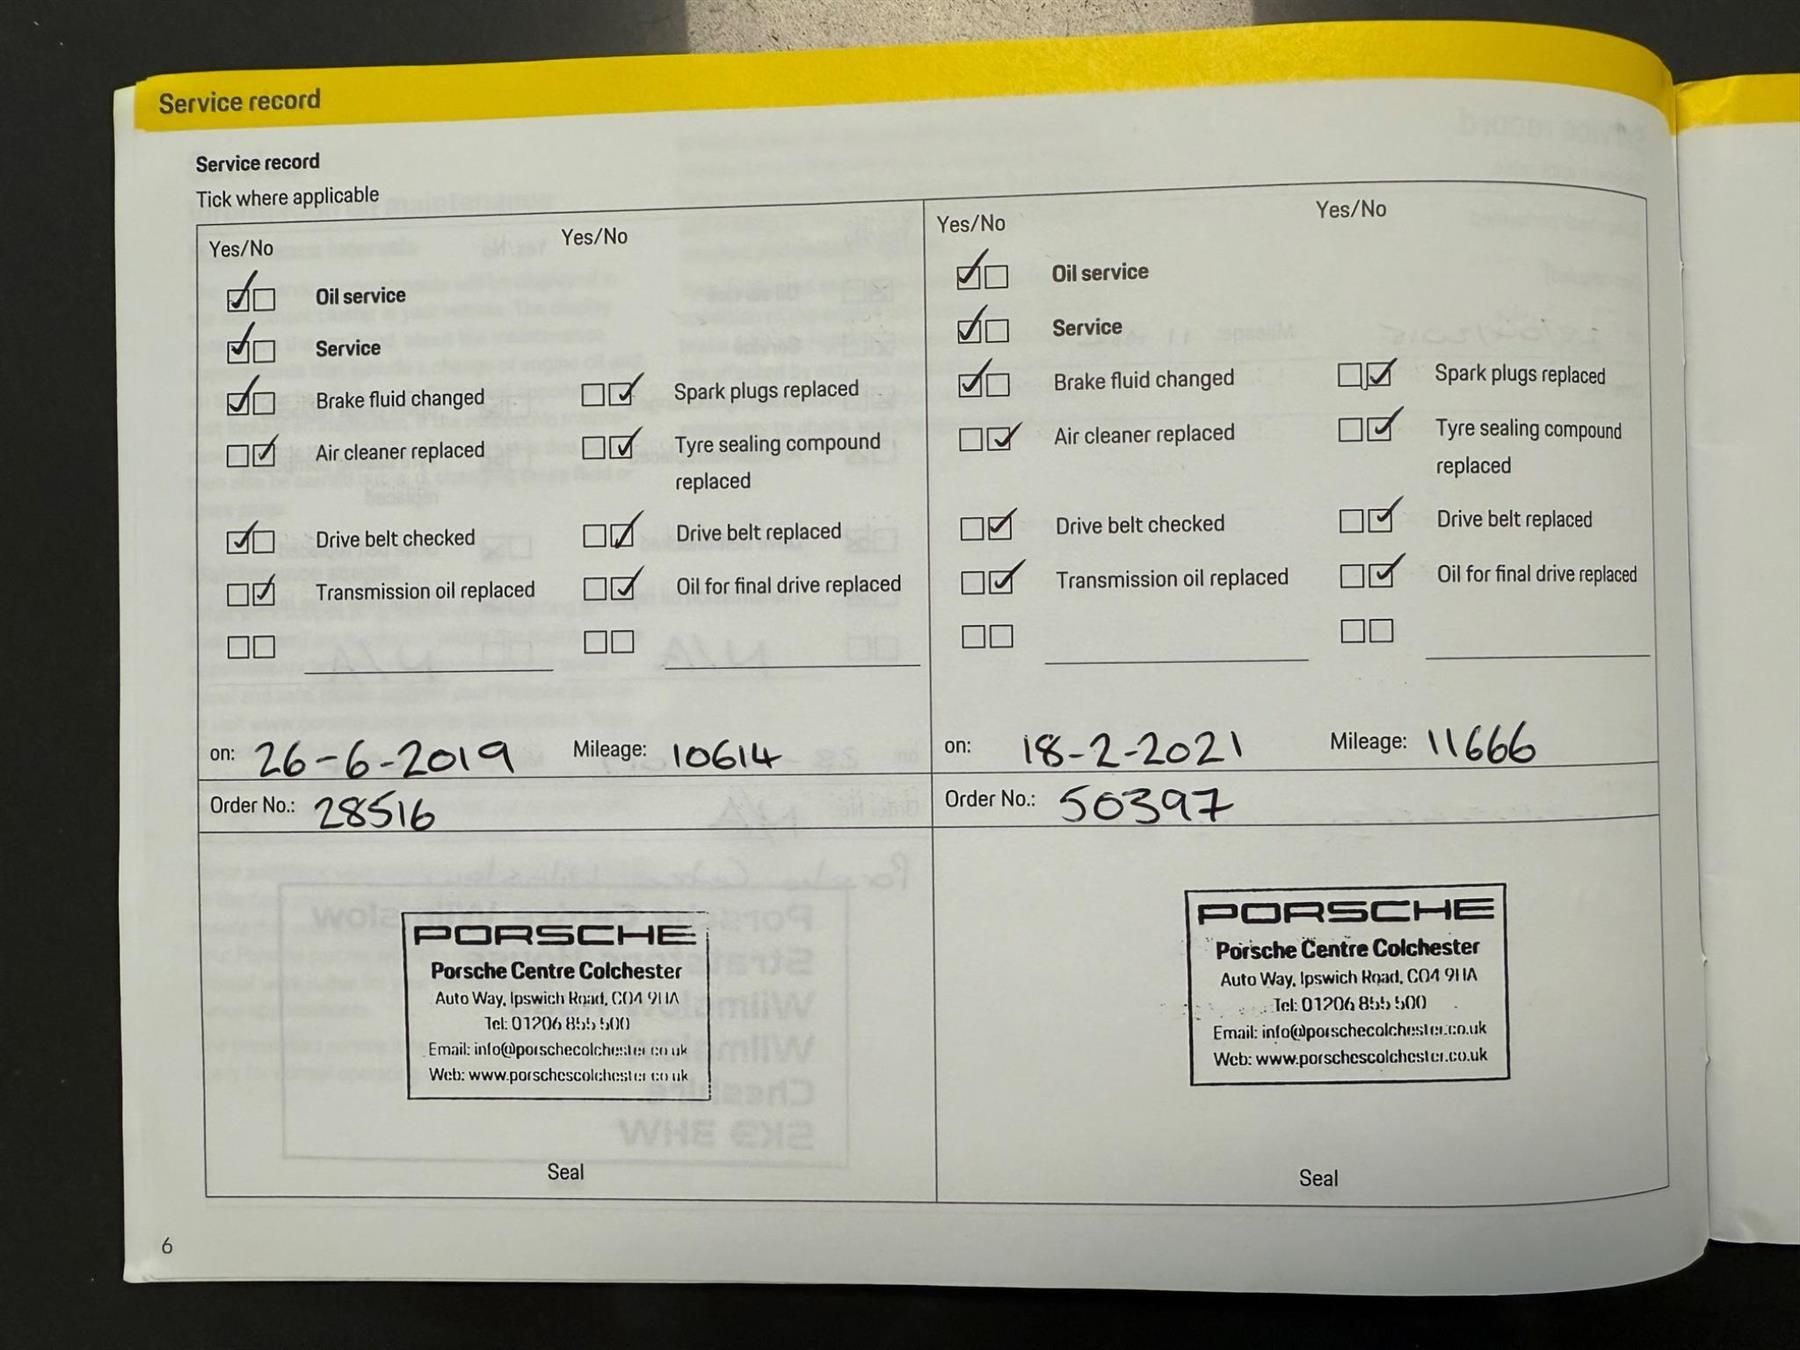 Service record
Service record
Tick where applicable
Yes/No
Yes/No
Oil service
Service
Brake fluid changed
Spark plugs replaced
Air cleaner replaced
Tyre sealing compound
replaced
Drive belt checked
Drive belt replaced
Transmission oil replaced
Oil for final drive replaced
on: 26-6-2019 Mileage: 10614
Order No.: 28516
PORSCHE
Porsche Centre Colchester
Auto Way, Ipswich Road, CO4 9HA
Tel: 01206 855 500
Email: info@porschecolchester.co.uk
Web: www.porschescolchester.co.uk
Seal
Yes/No
Yes/No
Oil service
Service
Brake fluid changed
Spark plugs replaced
Air cleaner replaced
Tyre sealing compound
replaced
Drive belt checked
Drive belt replaced
Transmission oil replaced
Oil for final drive replaced
on: 18-2-2021 Mileage: 11666
Order No.: 50397
PORSCHE
Porsche Centre Colchester
Auto Way, Ipswich Road, CO4 9HA
Tel: 01206 855 500
Email: info@porschecolchester.co.uk
Web: www.porschescolchester.co.uk
Seal
6